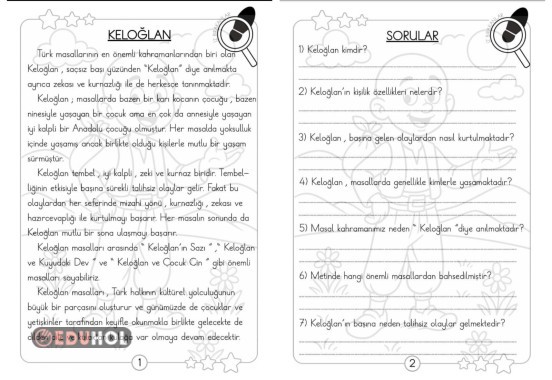 KELOĞLAN
Türk masallarının en önemli kahramanlarından biri olan
Keloğlan , saçsız başı yüzünden "Keloğlan" diye anılmakta
ayrıca zekası ve kurnazlığı ile de herkesce tanınmaktadır.
Keloğlan ; masallarda bazen bir karı kocanın çocuğu , bazen
ninesiyle yaşayan bir çocuk ama en çok da annesiyle yaşayan
iyi kalpli bir Anadolu çocuğu olmuştur. Her masalda yoksulluk
içinde yaşamış ancak birlikte olduğu kişilerle mutlu bir yaşam
sürmüştür.
Keloğlan tembel , iyi kalpli , zeki ve kurnaz biridir. Tembel-
liğinin etkisiyle başına sürekli talihsiz olaylar gelir. Fakat bu
olaylardan her seferinde mizahi yönü , kurnazlığı , zekası ve
hazırcevaplığı ile kurtulmayı başarır. Her masalın sonunda da
Keloğlan mutlu bir sona ulaşmayı başarır.
Keloğlan masalları arasında " Keloğlan'ın Sazı " ," Keloğlan
ve Kuyudaki Dev " ve " Keloğlan ve Çocuk Cin " gibi önemli
masalları sayabiliriz.
Keloğlan masalları , Türk halkının kültürel yolculuğunun
büyük bir parçasını oluşturur ve günümüzde de çocuklar ve
yetişkinler tarafından keyifle okunmakla birlikte gelecekte de
var olmaya devam edecektir.
EDUHOL
1
SORULAR
1) Keloğlan kimdir?
2) Keloğlan'ın kişilik özellikleri nelerdir?
3) Keloğlan , başına gelen olaylardan nasıl kurtulmaktadır?
4) Keloğlan , masallarda genellikle kimlerle yaşamaktadır?
5) Masal kahramanımız neden " Keloğlan "diye anılmaktadır?
6) Metinde hangi önemli masallardan bahsedilmiştir?
7) Keloğlan'ın başına neden talihsiz olaylar gelmektedir?
2